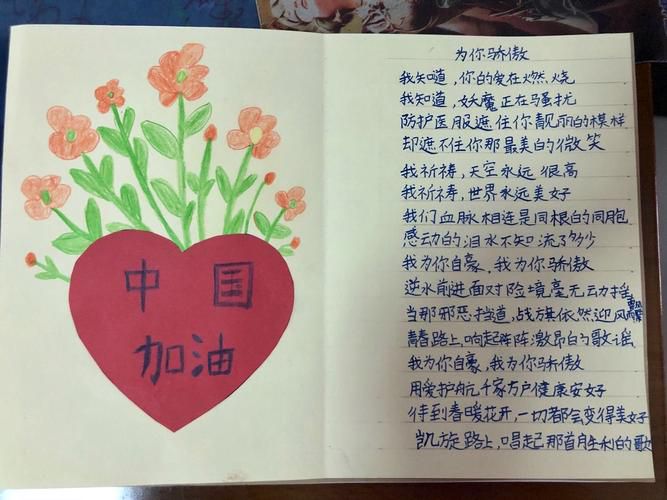 中国
加油
为你骄傲
我知道，你的爱在燃烧
我知道，妖魔正在骚扰
防护医服遮住你靓丽的模样
却遮不住你那最美的微笑
我祈祷，天空永远很高
我祈祷，世界永远美好
我们血脉相连是同根的同胞
感动的泪水不知流了多少
我为你自豪，我为你骄傲
逆水前进面对险境毫无动摇
当那邪恶挡道，战旗依然迎风飘
踏春路上，响起阵阵激昂的歌谣
我为你自豪，我为你骄傲
用爱护航千家万户健康安好
待到春暖花开，一切都会变得美好
凯旋路上，唱起那首胜利的歌